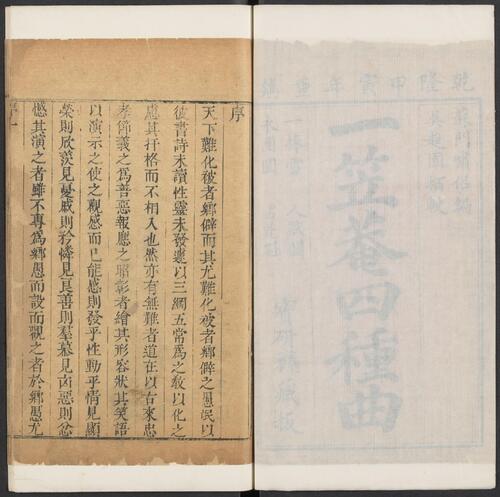 乾隆甲寅年重鐫
一笠菴四種曲
一捧雪 人獸關
永團圓 占花魁
藏板
序
天下難化被者鄉僻而其尤難化被者鄉僻之愚民以
彼書詩未讀性靈未發遽以三綱五常爲之教以化之
慮其扞格而不相入也然亦有無難者道在以古來忠
孝節義之爲善惡報應之昭彰者繪其形容狀其笑語
以演示之使之觀感而已能感則發乎性動乎情見顯
榮則欣羨見憂戚則矜憐見良善則羣慕見凶惡則忿
憾其演之者雖不專爲鄉愚而設而觀之者於鄉愚尤